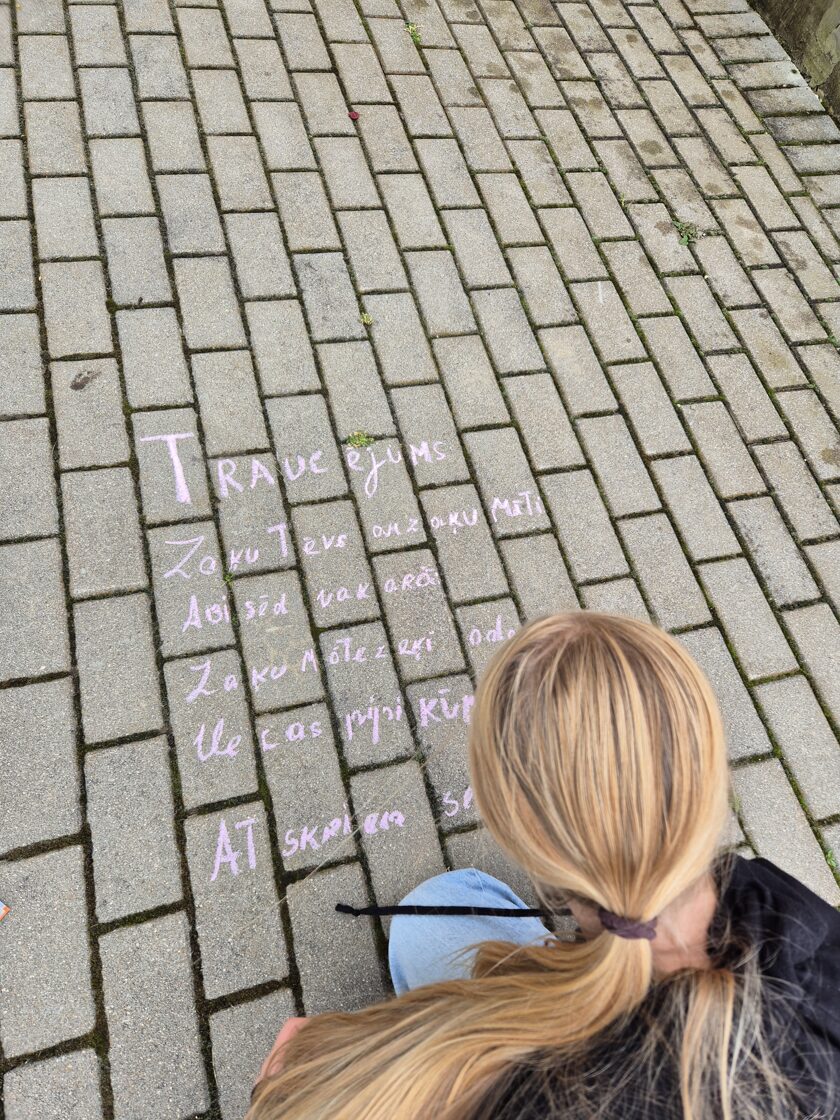 TRAUCĒJUMS
Zaķu Tēvs ar zaķu Māti
Abi sēd vakarā
Zaķu Māte zeķi ada
Vecas pīpi kūp
AT skrien